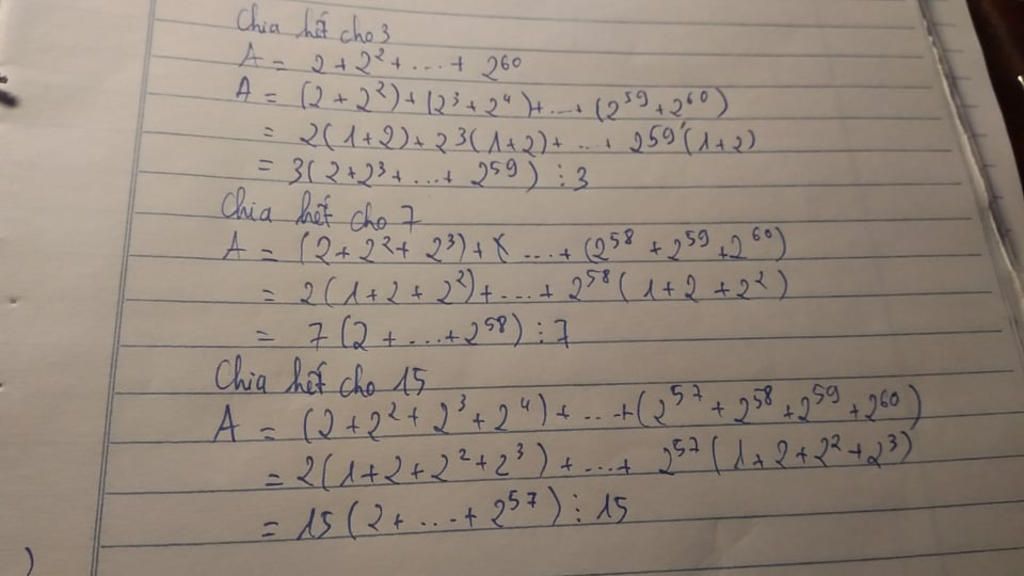 Chia hết cho 3
A = 2 + 2² + ... + 2⁶⁰
A = (2 + 2²) + (2³ + 2⁴) + ... + (2⁵⁹ + 2⁶⁰)
= 2(1+2) + 2³(1+2) + ... + 2⁵⁹(1+2)
= 3(2+2³ + ... + 2⁵⁹) ⋮ 3
Chia hết cho 7
A = (2 + 2² + 2³) + ( ... + (2⁵⁸ + 2⁵⁹ + 2⁶⁰)
= 2(1+2+2²) + ... + 2⁵⁸(1+2+2²)
= 7(2 + ... + 2⁵⁸) ⋮ 7
Chia hết cho 15
A = (2 + 2² + 2³ + 2⁴) + ... + (2⁵⁷ + 2⁵⁸ + 2⁵⁹ + 2⁶⁰)
= 2(1+2+2²+2³) + ... + 2⁵⁷(1+2+2²+2³)
= 15(2 + ... + 2⁵⁷) ⋮ 15
)